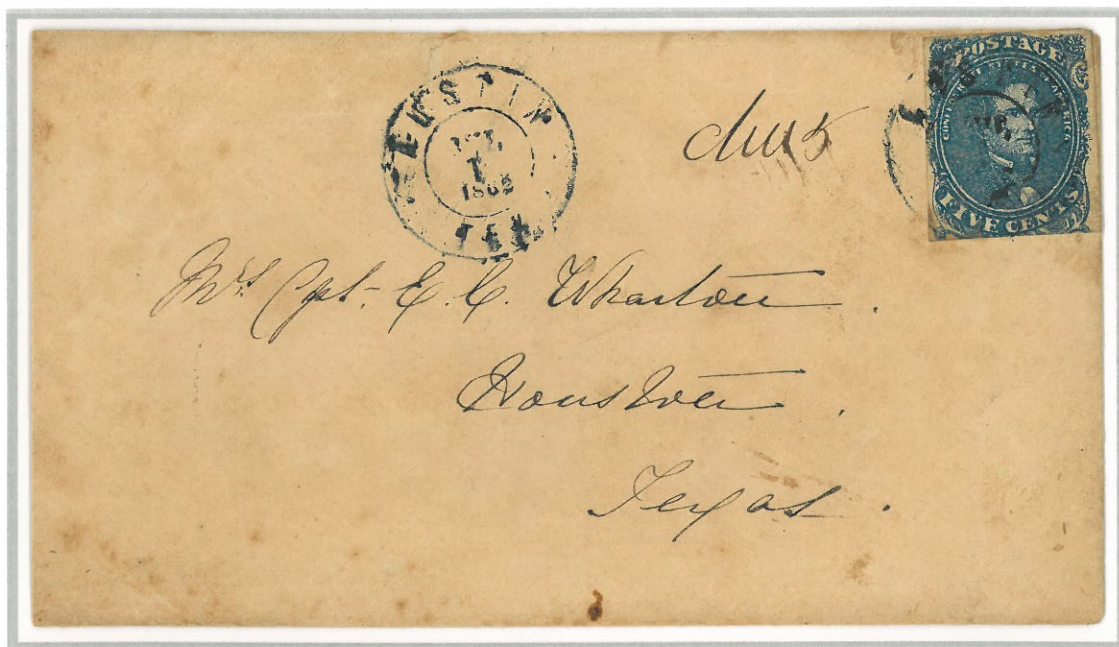 AUSTIN
1862
TEX
due 5
POSTAGE
CONFEDERATE STATES OF AMERICA
FIVE CENTS
Mrs. Cpt. E. C. Wharton.
Houston.
Texas.